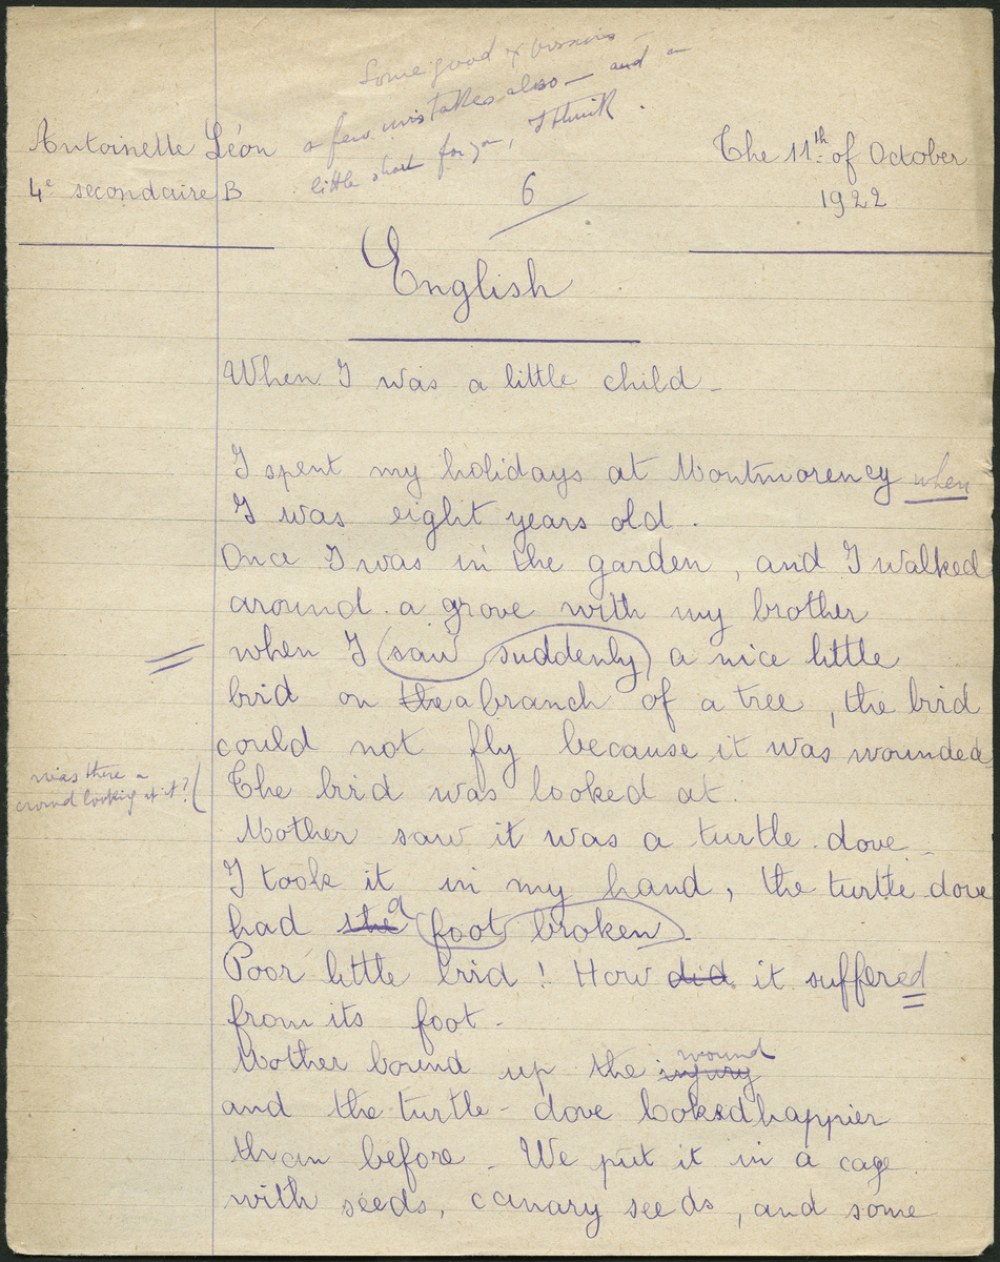 Some good expressions —
a few mistakes also — and a
little short for you, I think.
Antoinette Léon
4e secondaire B
6
The 11th of October
1922
English
When I was a little child -
I spent my holidays at Montmorency when
I was eight years old.
Once I was in the garden, and I walked
around a grove with my brother
when I saw suddenly a nice little
brid on the a branch of a tree, the brid
could not fly because it was wounded
was there a
crowd looking at it? (
The brid was looked at.
Mother saw it was a turtle-dove.
I took it in my hand, the turtle dove
had the a foot broken.
Poor little brid! How did it suffered
from its foot -
Mother bound up the injury wound
and the turtle-dove looked happier
than before - We put it in a cage
with seeds, canary seeds, and some